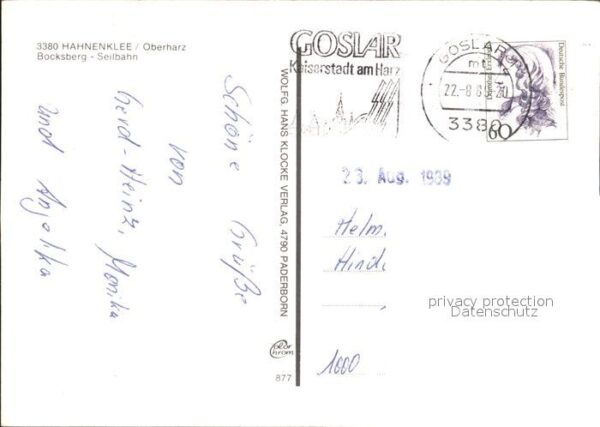 3380 HAHNENKLEE / Oberharz
Bocksberg - Seilbahn
Schöne Grüße
von
Gerd-Heinz, Monika
und Anjelika
WOLFG. HANS KLOCKE VERLAG, 4790 PADERBORN
color
chrom
877
GOSLAR
Kaiserstadt am Harz
GOSLAR
3380
Deutsche Bundespost
60
23. Aug. 1989
Helm.
Hind.
1000
privacy protection
Datenschutz